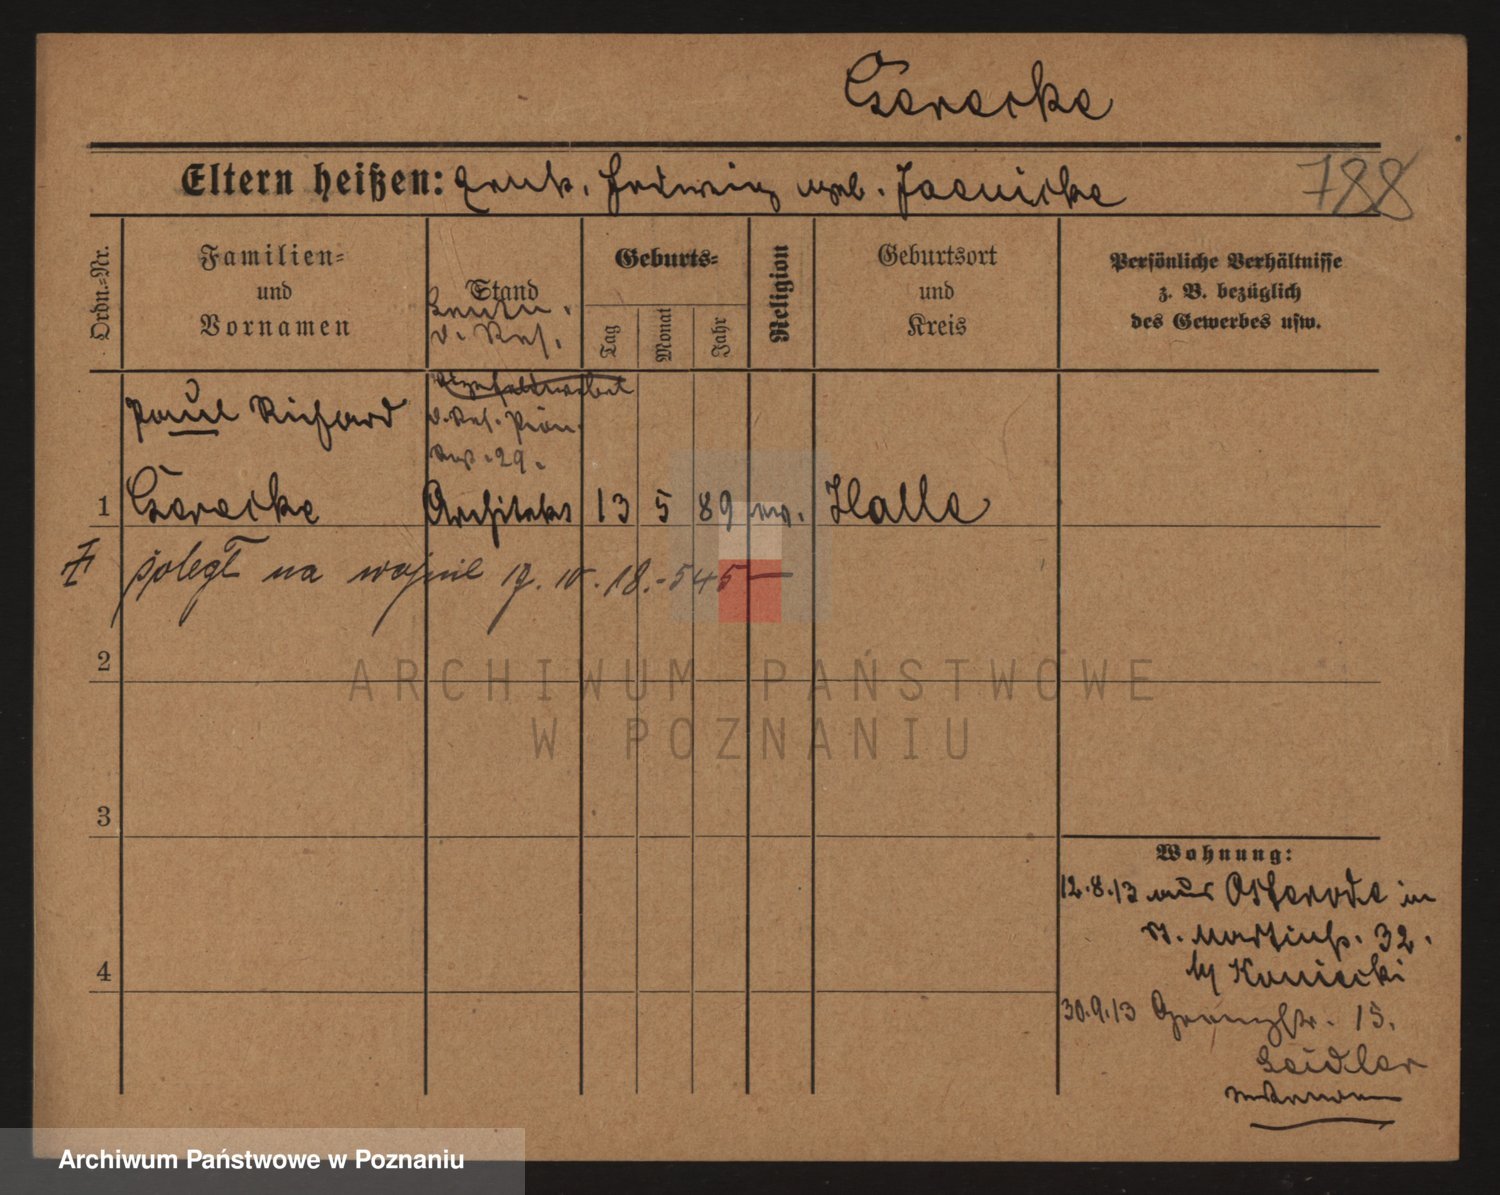 Gerecke
Eltern heißen: Hedwig geb. Jaenicke
788
Ordn.-Nr.
Familien-
und
Vornamen
Stand
Leutn.
d. Res.
Geburts-
Tag
Monat
Jahr
Religion
Geburtsort
und
Kreis
Persönliche Verhältnisse
z. B. bezüglich
des Gewerbes usw.
Vizefeldwebel
d. Res. Pion.
29.
Paul Richard
1 Gerecke Architekt 13 5 89 ev. Halle
poległ na wojnie 18. - 545 -
2
3
4
Wohnung:
12.8.13 aus Osterode in
St. Martinstr. 32.
b/ Koniecki
30.9.13 15.
Seidler
ARCHIWUM PAŃSTWOWE
W POZNANIU
Archiwum Państwowe w Poznaniu